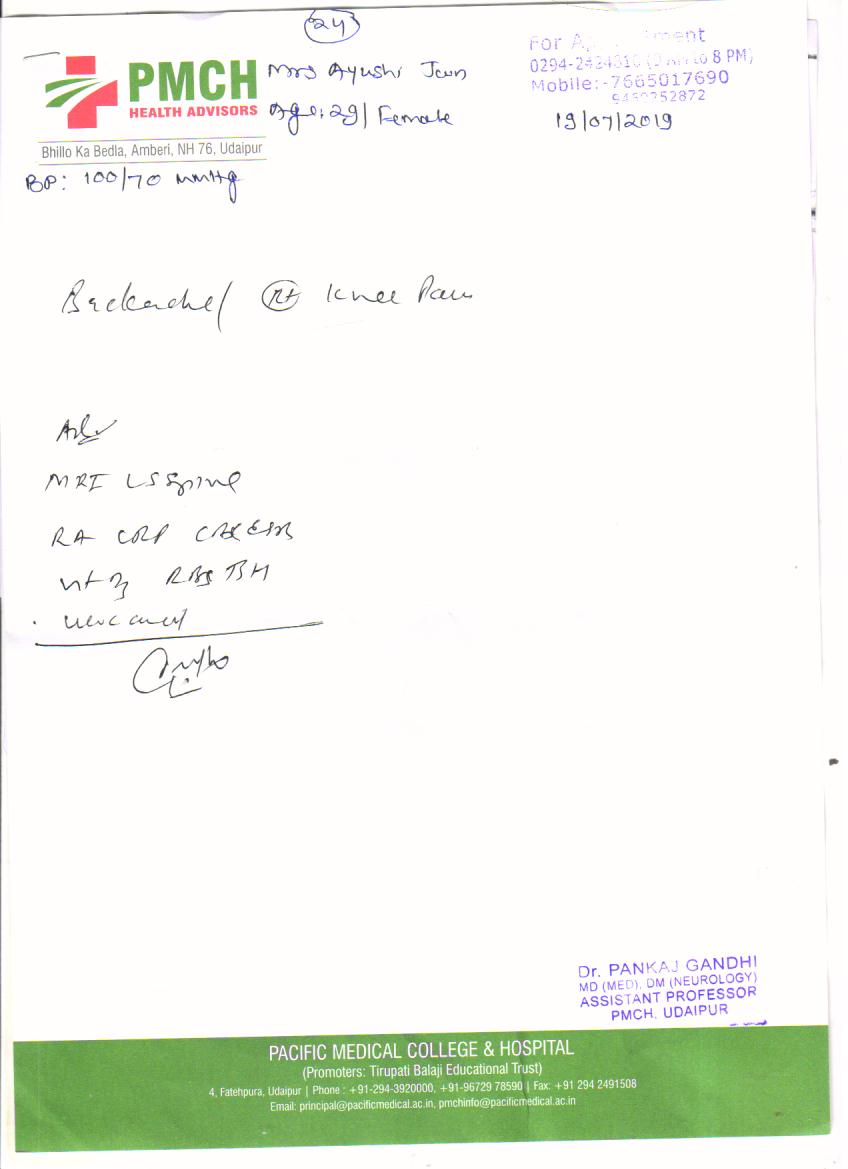 24
PMCH
HEALTH ADVISORS
Bhillo Ka Bedla, Amberi, NH 76, Udaipur
Mrs Ayushi Jain
Age: 29/Female
For
0294-2424310 8 PM)
Mobile:-7665017690
9
19/07/2019
BP: 100/70 mmHg
Backache/ Rt Knee Pain
Adv
MRI LS Spine
RA CRP CBC ESR
RBS
Dr. PANKAJ GANDHI
MD (MED), DM (NEUROLOGY)
ASSISTANT PROFESSOR
PMCH, UDAIPUR
PACIFIC MEDICAL COLLEGE & HOSPITAL
(Promoters: Tirupati Balaji Educational Trust)
4, Fatehpura, Udaipur | Phone : +91-294-3920000, +91-96729 78590 | Fax: +91 294 2491508
Email: principal@pacificmedical.ac.in, pmchinfo@pacificmedical.ac.in